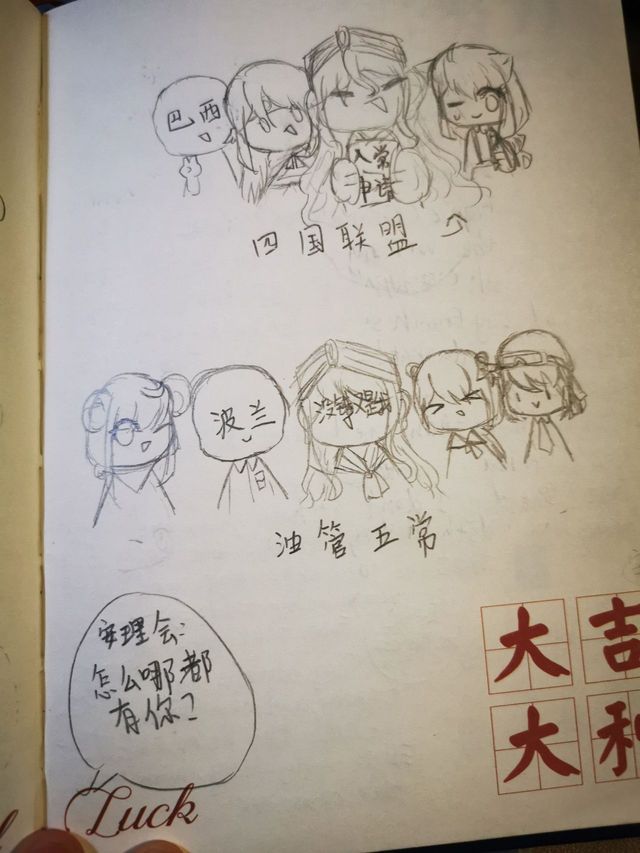 巴西
入常
申请
四国联盟
波兰
没错又是我
油管五常
安理会:
怎么哪都
有你?
大吉
大利
Luck